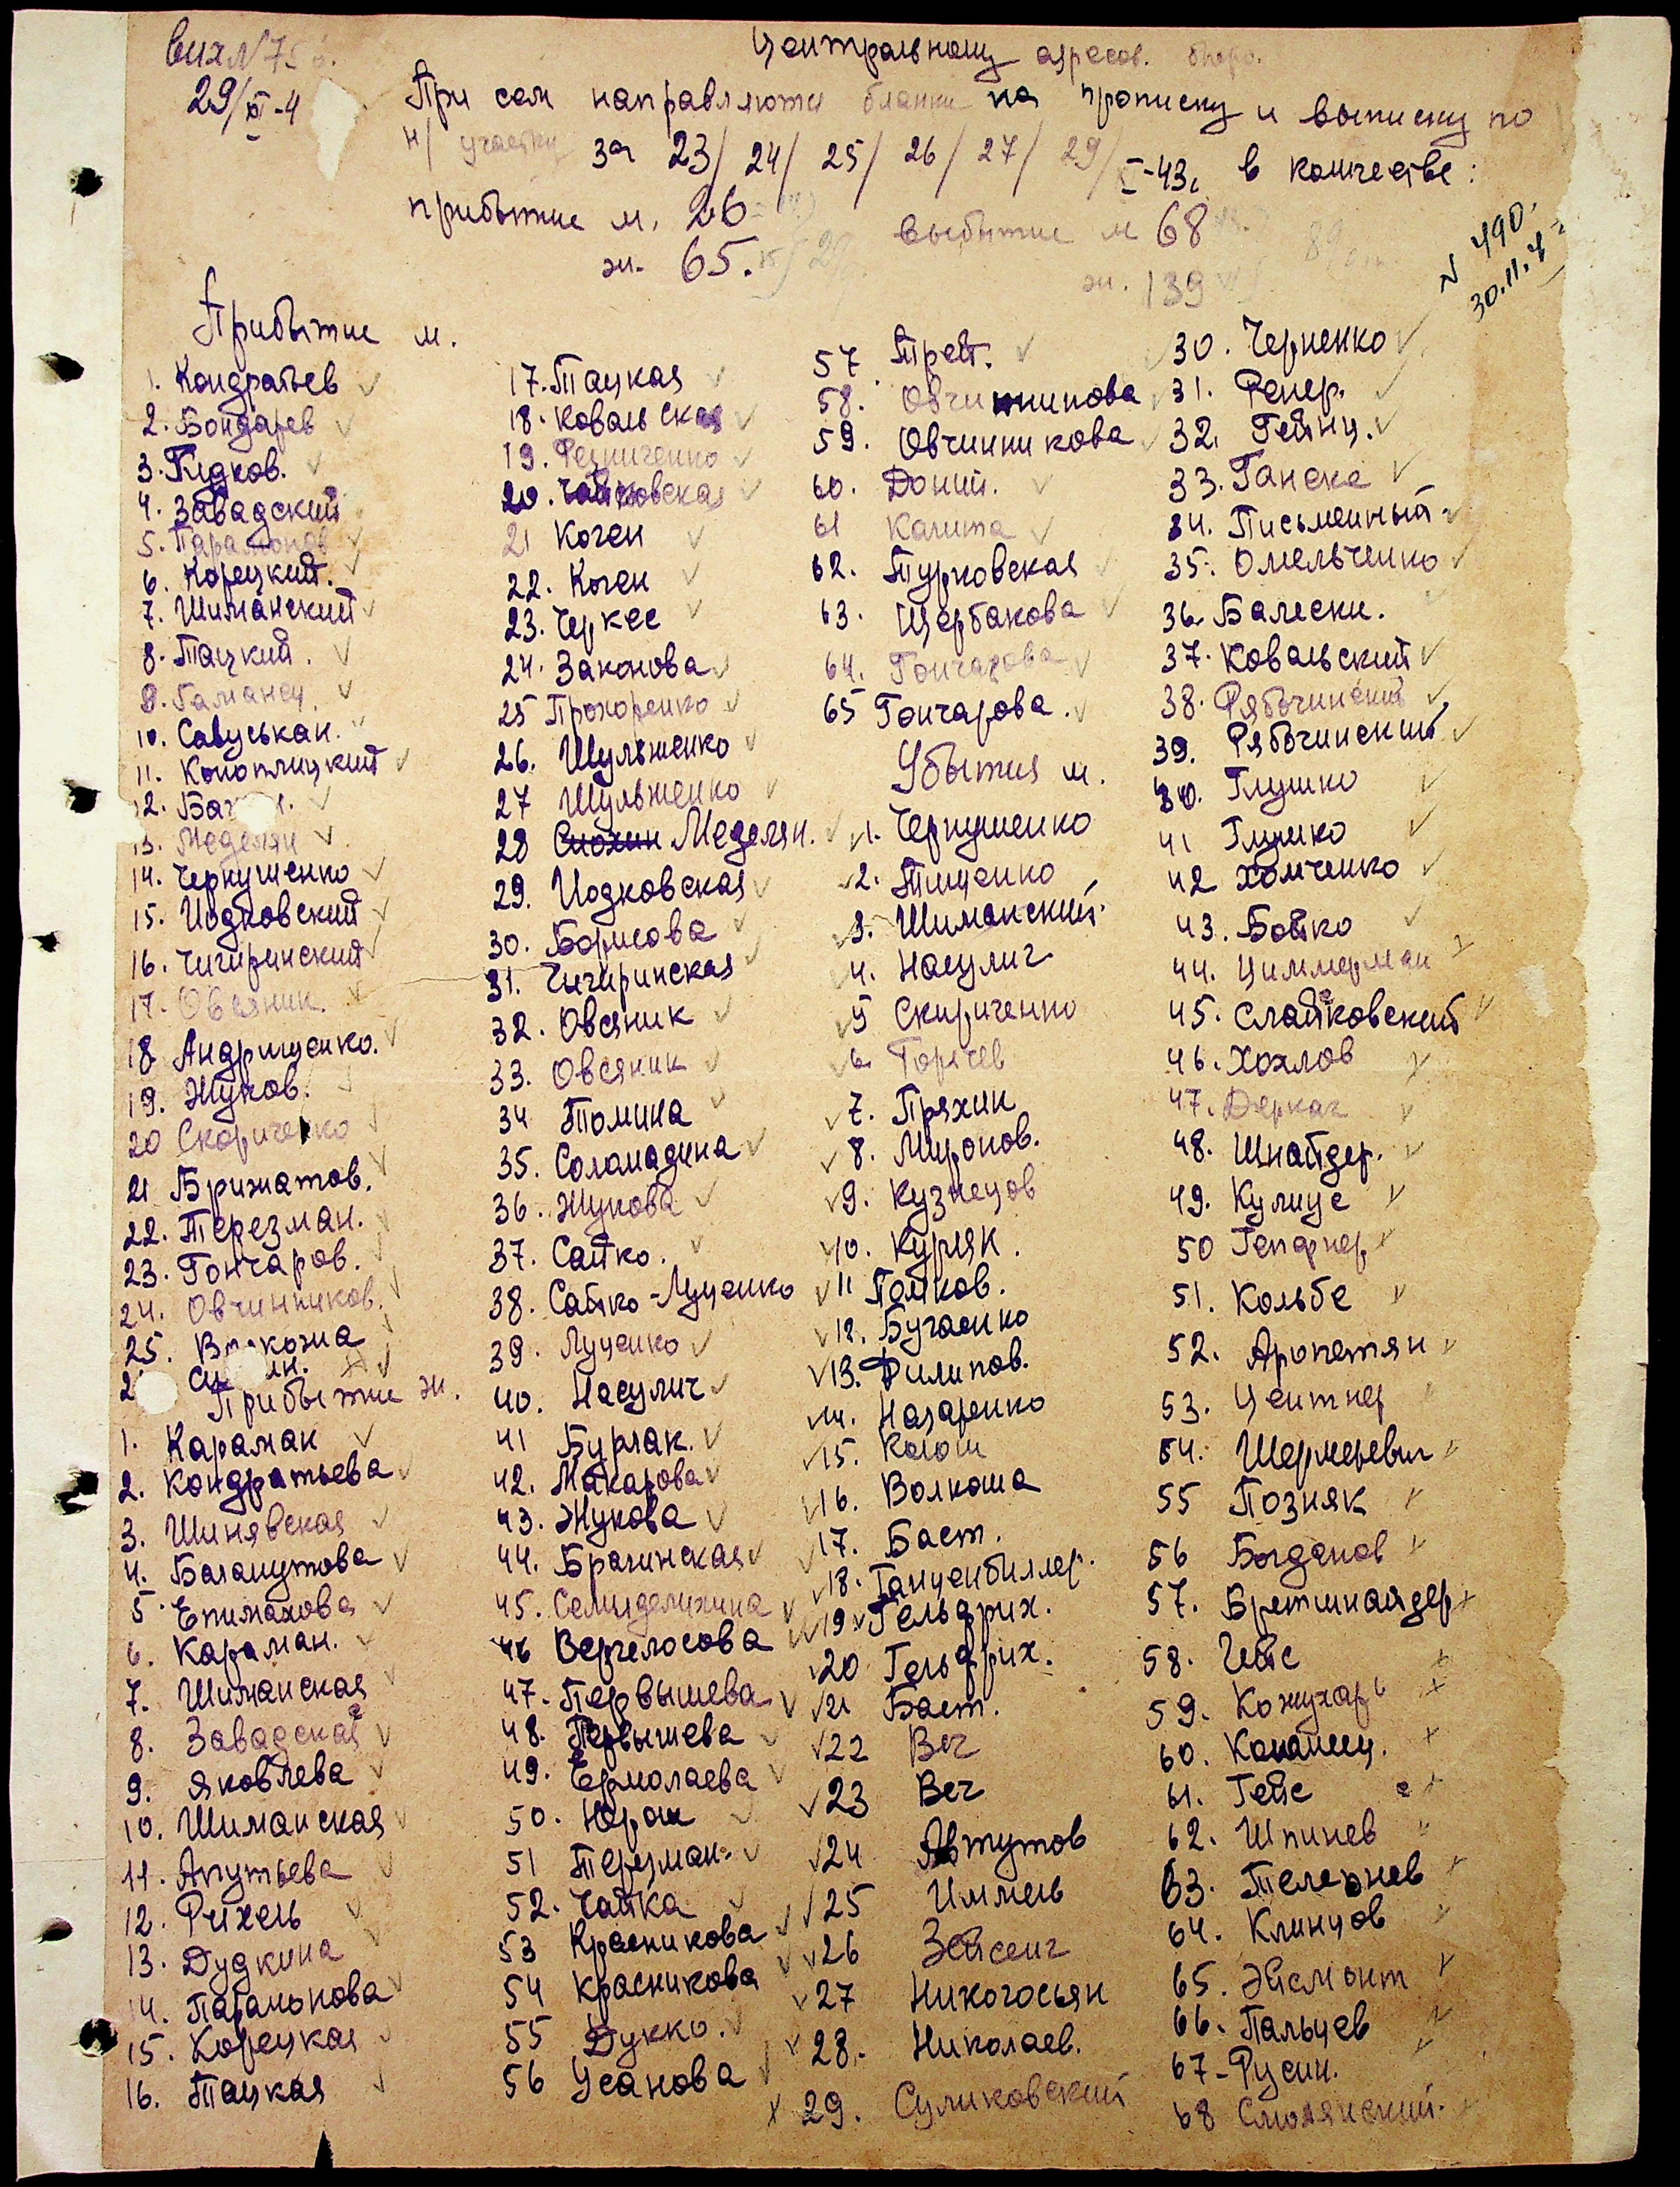 вих N 75
29/XI-4
Центральному адресов. бюро.
При сем направляются бланки на прописку и выписку по
н/ участку за 23/ 24/ 25/ 26/ 27/ 29/ XI-43г. в количестве:
прибытие м. 26 выбытие м 68
ж. 65. ж. 139
N 490.
30.11.4
Прибытие м.
1. Кондратьев
2. Бондарев
3. Гидков.
4. Завадский
5. Парамонов
6. Корецкий.
7. Шиманский
8. Тацкий.
9. Галанец.
10. Савуськан.
11. Коноплицкий
12.
13. Меделян
14. Чернушенко
15. Иодковский
16. Чигиринский
17. Овсяник.
18 Андрищенко.
19. Жуков.
20 Скориченко
21 Брижатов.
22. Терезман.
23. Гончаров.
24. Овчинников.
25.
Прибытие ж.
1. Караман
2. Кондратьева
3. Шинявская
4. Баламутова
5 Епимахова
6. Караман.
7. Шиманская
8. Завадская
9. Яковлева
10. Шиманская
11. Апутьева
12. Рейхель
13. Дудкина
14. Парамонова
15. Корецкая
16. Тацкая
17. Тацкая
18. Ковальская
19. Резниченко
20. Чайковская
21 Коген
22. Коген
23. Черкес
24. Законова
25 Прохоренко
26. Шульженко
27 Шульженко
28 Меделян.
29. Иодковская
30. Борисова
31. Чигиринская
32. Овсяник
33. Овсяник
34 Томина
35. Соломадина
36. Жукова
37. Сайко.
38. Сайко-Луценко
39. Луценко
40. Насулич
41 Бурлак.
42. Макарова
43. Жукова
44. Брагинская
45. Семиделихина
46 Верхелосова
47. Первышева
48. Первышева
49. Ермолаева
50. Юрак
51 Терезман
52. Чайка
53 Красникова
54 Красникова
55 Дукко.
56 Усанова
57 Трет.
58. Овчинникова
59. Овчинникова
60. Доний.
61 Калита
62. Турковская
63. Щербакова
64. Гончарова
65 Гончарова.
Убытия м.
1. Чернушенко
2. Тищенко
3. Шиманский
4. Насулич
5 Скориченко
6. Горячев
7. Пряхин
8. Миронов.
9. Кузнецов
10. Курляк.
11 Полков.
12. Бугаенко
13. Филипов.
14. Назаренко
15. Когош
16. Волкоша
17. Баст.
18. Ганценбиллер.
19 Гельфрих.
20 Гельфрих.
21 Баст.
22 Веч
23 Веч
24 Автутов
25 Иммель
26 Зейсенг
27 Никогосьян
28. Николаев.
29. Суликовский
30. Черненко
31. Репер.
32. Гейнц.
33. Ганске
34. Письменный
35. Омельченко
36. Балески.
37. Ковальский
38. Рябочинский
39. Рябочинский
40. Глушко
41 Глушко
42 Хомченко
43. Бойко
44. Циммерман
45. Слайковский
46. Хохлов
47. Деркач
48. Шнайдер.
49. Кулице
50 Гепфнер
51. Кольбе
52. Аропетян
53. Цейтнер
54. Шермеревич
55 Позняк
56 Богданов
57. Бретшнайдер
58. Чейс
59. Кожухарь
60. Коломиец.
61. Гейс
62. Шпинев
63. Телепнев
64. Клинцов
65. Эйсмонт
66. Пальцев
67-Русин.
68 Смолянский.